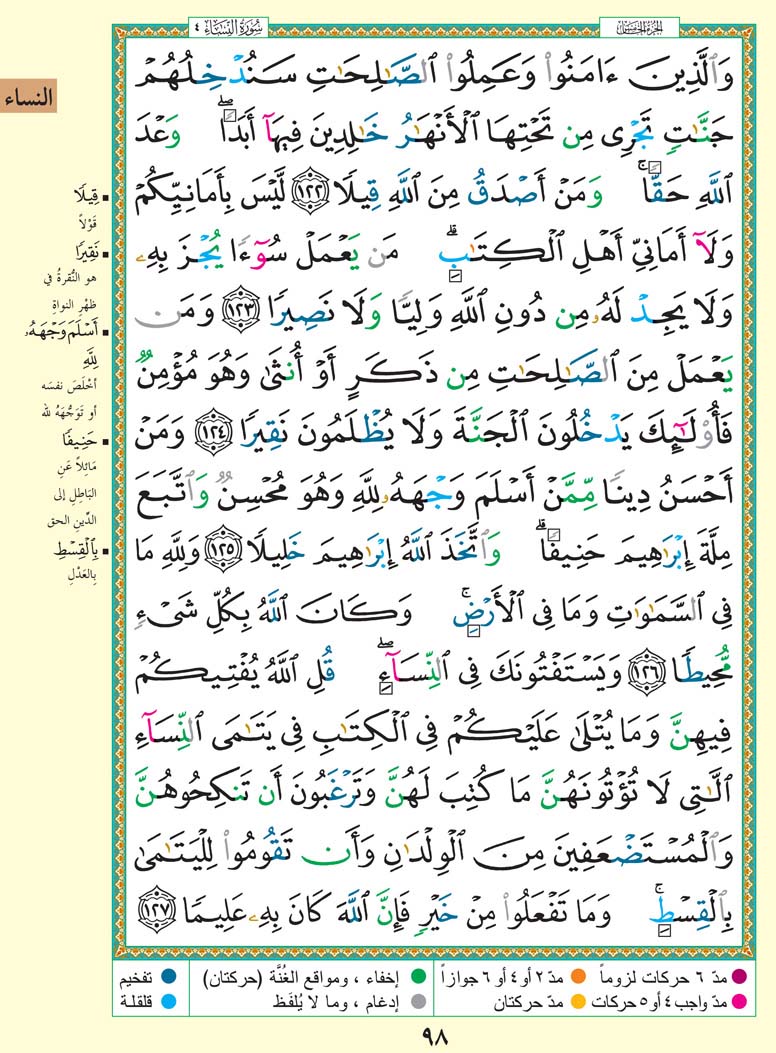 سُورَةُ النِّسَاءِ ٤
الجُزْءُ الخَامِسُ
النساء
وَٱلَّذِينَ ءَامَنُوا۟ وَعَمِلُوا۟ ٱلصَّـٰلِحَـٰتِ سَنُدْخِلُهُمْ
جَنَّـٰتٍ تَجْرِى مِن تَحْتِهَا ٱلْأَنْهَـٰرُ خَـٰلِدِينَ فِيهَآ أَبَدًا ۖ وَعْدَ
ٱللَّهِ حَقًّا ۚ وَمَنْ أَصْدَقُ مِنَ ٱللَّهِ قِيلًا ١٢٢ لَّيْسَ بِأَمَانِيِّكُمْ
وَلَآ أَمَانِىِّ أَهْلِ ٱلْكِتَـٰبِ ۗ مَن يَعْمَلْ سُوٓءًا يُجْزَ بِهِۦ
وَلَا يَجِدْ لَهُۥ مِن دُونِ ٱللَّهِ وَلِيًّا وَلَا نَصِيرًا ١٢٣ وَمَن
يَعْمَلْ مِنَ ٱلصَّـٰلِحَـٰتِ مِن ذَكَرٍ أَوْ أُنثَىٰ وَهُوَ مُؤْمِنٌ
فَأُو۟لَـٰٓئِكَ يَدْخُلُونَ ٱلْجَنَّةَ وَلَا يُظْلَمُونَ نَقِيرًا ١٢٤ وَمَنْ
أَحْسَنُ دِينًا مِّمَّنْ أَسْلَمَ وَجْهَهُۥ لِلَّهِ وَهُوَ مُحْسِنٌ وَٱتَّبَعَ
مِلَّةَ إِبْرَٰهِيمَ حَنِيفًا ۗ وَٱتَّخَذَ ٱللَّهُ إِبْرَٰهِيمَ خَلِيلًا ١٢٥ وَلِلَّهِ مَا
فِى ٱلسَّمَـٰوَٰتِ وَمَا فِى ٱلْأَرْضِ ۚ وَكَانَ ٱللَّهُ بِكُلِّ شَىْءٍ
مُّحِيطًا ١٢٦ وَيَسْتَفْتُونَكَ فِى ٱلنِّسَآءِ ۖ قُلِ ٱللَّهُ يُفْتِيكُمْ
فِيهِنَّ وَمَا يُتْلَىٰ عَلَيْكُمْ فِى ٱلْكِتَـٰبِ فِى يَتَـٰمَى ٱلنِّسَآءِ
ٱلَّـٰتِى لَا تُؤْتُونَهُنَّ مَا كُتِبَ لَهُنَّ وَتَرْغَبُونَ أَن تَنكِحُوهُنَّ
وَٱلْمُسْتَضْعَفِينَ مِنَ ٱلْوِلْدَٰنِ وَأَن تَقُومُوا۟ لِلْيَتَـٰمَىٰ
بِٱلْقِسْطِ ۚ وَمَا تَفْعَلُوا۟ مِنْ خَيْرٍ فَإِنَّ ٱللَّهَ كَانَ بِهِۦ عَلِيمًا ١٢٧
▪ قِيلًا
قَوْلاً
▪ نَقِيرًا
هو النُّقرةُ في
ظهْرِ النواةِ
▪ أَسْلَمَ وَجْهَهُۥ
لِلَّهِ
أخْلَصَ نفسَه
أو تَوَجُّهَهُ لله
▪ حَنِيفًا
مَائِلاً عَنِ
البَاطِلِ إلى
الدِّينِ الحق
▪ بِالْقِسْطِ
بِالعَدْلِ
مدّ ٦ حركات لزوماً مدّ ٢ أو ٤ أو ٦ جوازاً إخفاء ، ومواقع الغُنَّة (حركتان) تفخيم
مدّ واجب ٤ أو ٥ حركات مدّ حركتان إدغام ، وما لا يُلفَظ قلقلة
٩٨